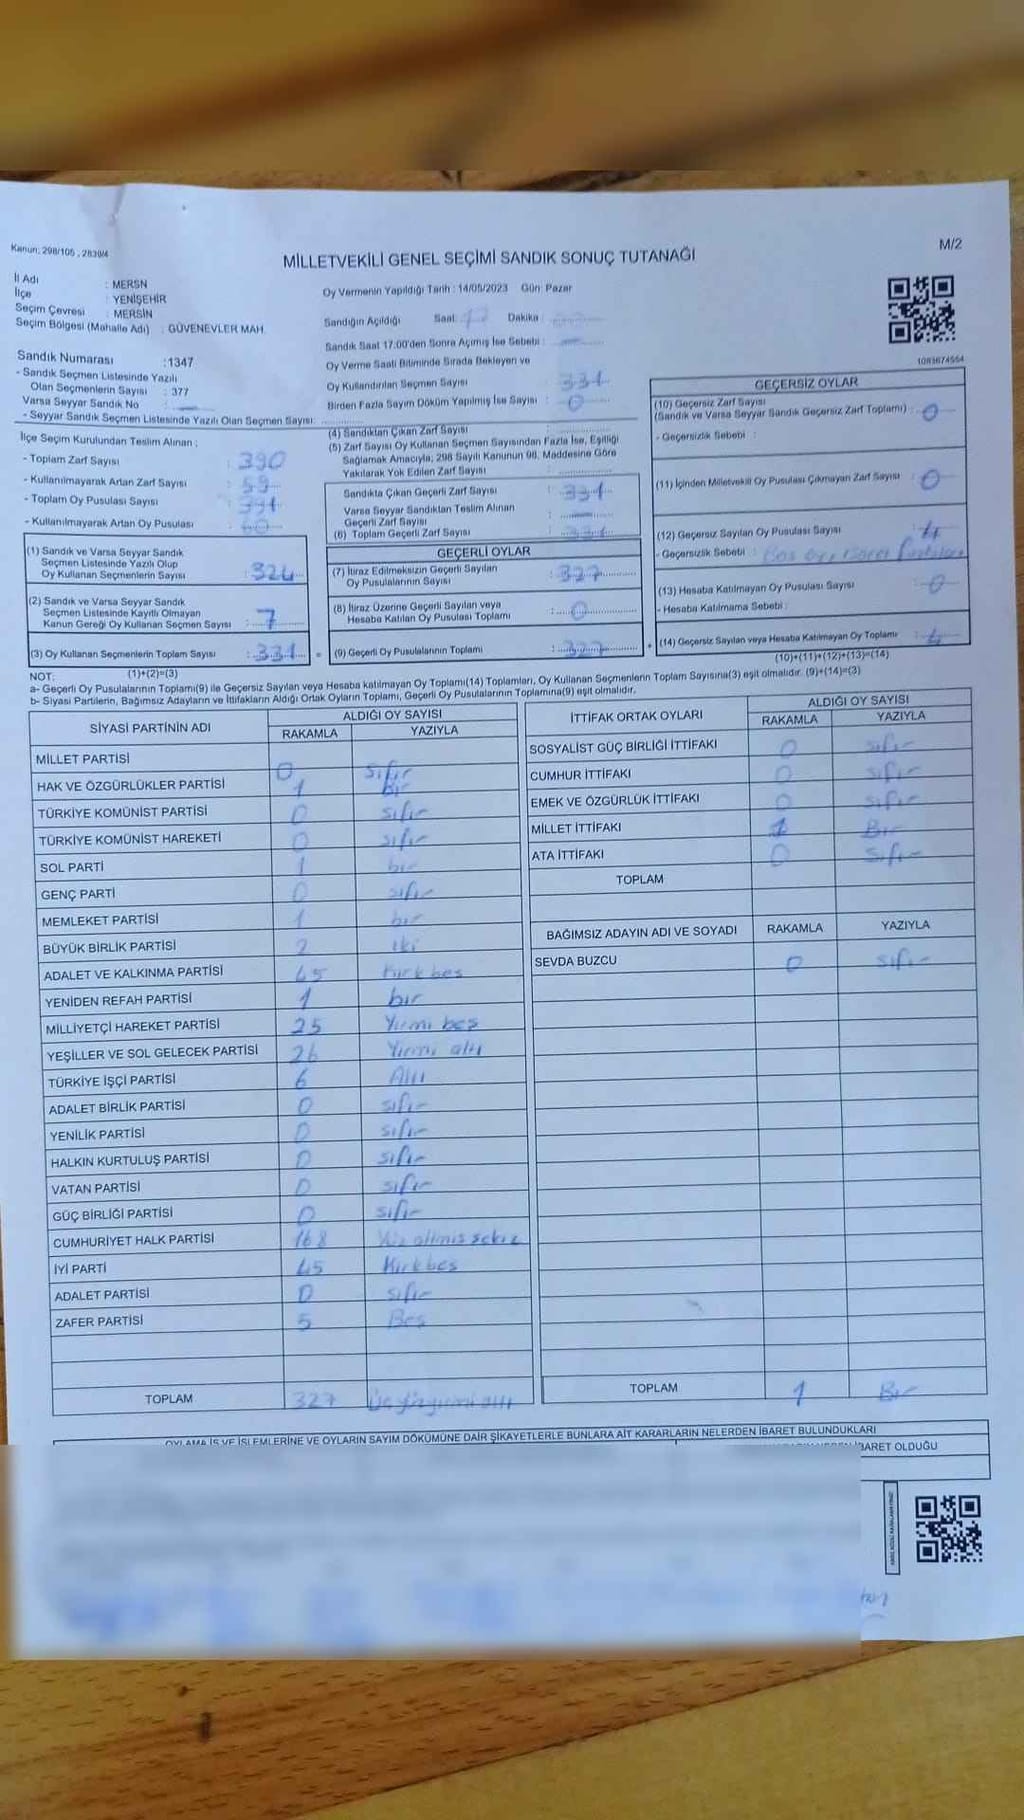 Kanun: 298/105 , 2839/4
M/2
MİLLETVEKİLİ GENEL SEÇİMİ SANDIK SONUÇ TUTANAĞI
İl Adı : MERSN
İlçe : YENİŞEHİR
Seçim Çevresi : MERSİN
Seçim Bölgesi (Mahalle Adı) : GÜVENEVLER MAH.
Oy Vermenin Yapıldığı Tarih : 14/05/2023 Gün: Pazar
Sandığın Açıldığı Saat: 17 Dakika :
Sandık Saat 17:00'den Sonra Açımış İse Sebebi :
Oy Verme Saati Bitiminde Sırada Bekleyen ve
Oy Kullandırılan Seçmen Sayısı : 331
Birden Fazla Sayım Döküm Yapılmış İse Sayısı : 0
1083674554
Sandık Numarası :1347
- Sandık Seçmen Listesinde Yazılı
Olan Seçmenlerin Sayısı : 377
Varsa Seyyar Sandık No
- Seyyar Sandık Seçmen Listesinde Yazılı Olan Seçmen Sayısı:
İlçe Seçim Kurulundan Teslim Alınan :
- Toplam Zarf Sayısı : 390
- Kullanılmayarak Artan Zarf Sayısı : 59
- Toplam Oy Pusulası Sayısı : 391
- Kullanılmayarak Artan Oy Pusulası : 60
(1) Sandık ve Varsa Seyyar Sandık
Seçmen Listesinde Yazılı Olup
Oy Kullanan Seçmenlerin Sayısı : 324
(2) Sandık ve Varsa Seyyar Sandık
Seçmen Listesinde Kayıtlı Olmayan
Kanun Gereği Oy Kullanan Seçmen Sayısı : 7
(3) Oy Kullanan Seçmenlerin Toplam Sayısı : 331
(1)+(2)=(3)
(4) Sandıktan Çıkan Zarf Sayısı :
(5) Zarf Sayısı Oy Kullanan Seçmen Sayısından Fazla İse, Eşitliği
Sağlamak Amacıyla; 298 Sayılı Kanunun 98. Maddesine Göre
Yakılarak Yok Edilen Zarf Sayısı :
Sandıkta Çıkan Geçerli Zarf Sayısı : 331
Varsa Seyyar Sandıktan Teslim Alınan
Geçerli Zarf Sayısı :
(6) Toplam Geçerli Zarf Sayısı : 331
GEÇERLİ OYLAR
(7) İtiraz Edilmeksizin Geçerli Sayılan
Oy Pusulalarının Sayısı : 327
(8) İtiraz Üzerine Geçerli Sayılan veya
Hesaba Katılan Oy Pusulası Toplamı : 0
(9) Geçerli Oy Pusulalarının Toplamı : 327
GEÇERSİZ OYLAR
(10) Geçersiz Zarf Sayısı
(Sandık ve Varsa Seyyar Sandık Geçersiz Zarf Toplamı) : 0
- Geçersizlik Sebebi :
(11) İçinden Milletvekili Oy Pusulası Çıkmayan Zarf Sayısı : 0
(12) Geçersiz Sayılan Oy Pusulası Sayısı : 4
- Geçersizlik Sebebi :
(13) Hesaba Katılmayan Oy Pusulası Sayısı : 0
- Hesaba Katılmama Sebebi :
(14) Geçersiz Sayılan veya Hesaba Katılmayan Oy Toplamı : 4
(10)+(11)+(12)+(13)=(14)
NOT:
a- Geçerli Oy Pusulalarının Toplamı(9) ile Geçersiz Sayılan veya Hesaba katılmayan Oy Toplamı(14) Toplamları, Oy Kullanan Seçmenlerin Toplam Sayısına(3) eşit olmalıdır. (9)+(14)=(3)
b- Siyasi Partilerin, Bağımsız Adayların ve İttifakların Aldığı Ortak Oyların Toplamı, Geçerli Oy Pusulalarının Toplamına(9) eşit olmalıdır.
SİYASİ PARTİNİN ADI ALDIĞI OY SAYISI
RAKAMLA YAZIYLA
MİLLET PARTİSİ 0 Sıfır
HAK VE ÖZGÜRLÜKLER PARTİSİ 1 Bir
TÜRKİYE KOMÜNİST PARTİSİ 0 sıfır
TÜRKİYE KOMÜNİST HAREKETİ 0 sıfır
SOL PARTİ 1 bir
GENÇ PARTİ 0 sıfır
MEMLEKET PARTİSİ 1 bir
BÜYÜK BİRLİK PARTİSİ 2 iki
ADALET VE KALKINMA PARTİSİ 45 kırk beş
YENİDEN REFAH PARTİSİ 1 bir
MİLLİYETÇİ HAREKET PARTİSİ 25 Yirmi beş
YEŞİLLER VE SOL GELECEK PARTİSİ 26 Yirmi altı
TÜRKİYE İŞÇİ PARTİSİ 6 Altı
ADALET BİRLİK PARTİSİ 0 sıfır
YENİLİK PARTİSİ 0 sıfır
HALKIN KURTULUŞ PARTİSİ 0 sıfır
VATAN PARTİSİ 0 sıfır
GÜÇ BİRLİĞİ PARTİSİ 0 sıfır
CUMHURİYET HALK PARTİSİ 168 Yüz altmış sekiz
İYİ PARTİ 45 Kırkbeş
ADALET PARTİSİ 0 sıfır
ZAFER PARTİSİ 5 Beş
TOPLAM 327 Üçyüzyirmi altı
İTTİFAK ORTAK OYLARI ALDIĞI OY SAYISI
RAKAMLA YAZIYLA
SOSYALİST GÜÇ BİRLİĞİ İTTİFAKI 0 sıfır
CUMHUR İTTİFAKI 0 sıfır
EMEK VE ÖZGÜRLÜK İTTİFAKI 0 sıfır
MİLLET İTTİFAKI 1 Bir
ATA İTTİFAKI 0 Sıfır
TOPLAM
BAĞIMSIZ ADAYIN ADI VE SOYADI RAKAMLA YAZIYLA
SEVDA BUZCU 0 sıfır
TOPLAM 1 Bir
OYLAMA İŞ VE İŞLEMLERİNE VE OYLARIN SAYIM DÖKÜMÜNE DAİR ŞİKAYETLERLE BUNLARA AİT KARARLARIN NELERDEN İBARET BULUNDUKLARI
İBARET OLDUĞU